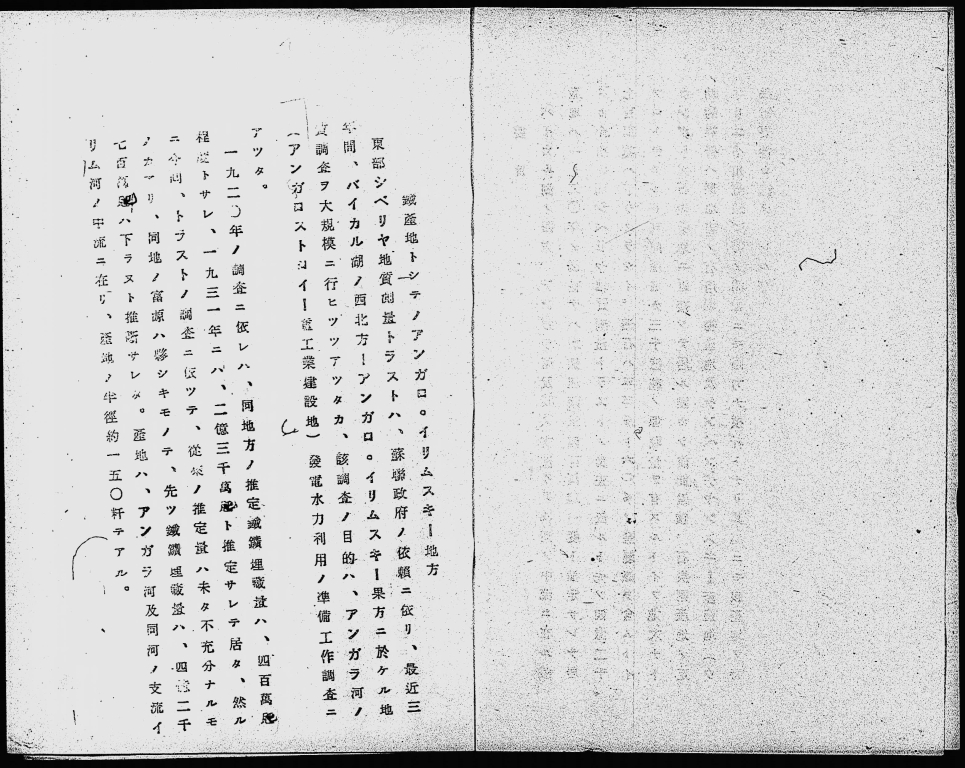 鐵產地トシテノアンガロ。イリムスキー地方
東部シベリヤ地質測量トラストハ、蘇聯政府ノ依賴ニ依リ、最近三
年間、バイカル湖ノ西北方ーアンガロ。イリムスキー果方ニ於ケル地
質調査ヲ大規模ニ行ヒツツアツタカ、該調査ノ目的ハ、アンガラ河ノ
(アンガロストロイー重工業建設地)發電水力利用ノ準備工作調査ニ
アツタ。
一九二〇年ノ調査ニ依レハ、同地方ノ推定鐵鑛埋藏量ハ、四百萬瓲
程度トサレ、一九三一年ニハ、二億三千萬瓲ト推定サレテ居タ、然ル
ニ今回、トラストノ調査ニ依ツテ、從來ノ推定量ハ未タ不充分ナルモ
ノカアリ、同地ノ富源ハ夥シキモノテ、先ツ鐵鑛埋藏量ハ、四億二千
七百萬瓲ハ下ラヌト推斷サレタ。產地ハ、アンガラ河及同河ノ支流イ
リム河ノ中流ニ在リ、產地ノ半徑約一五〇粁テアル。